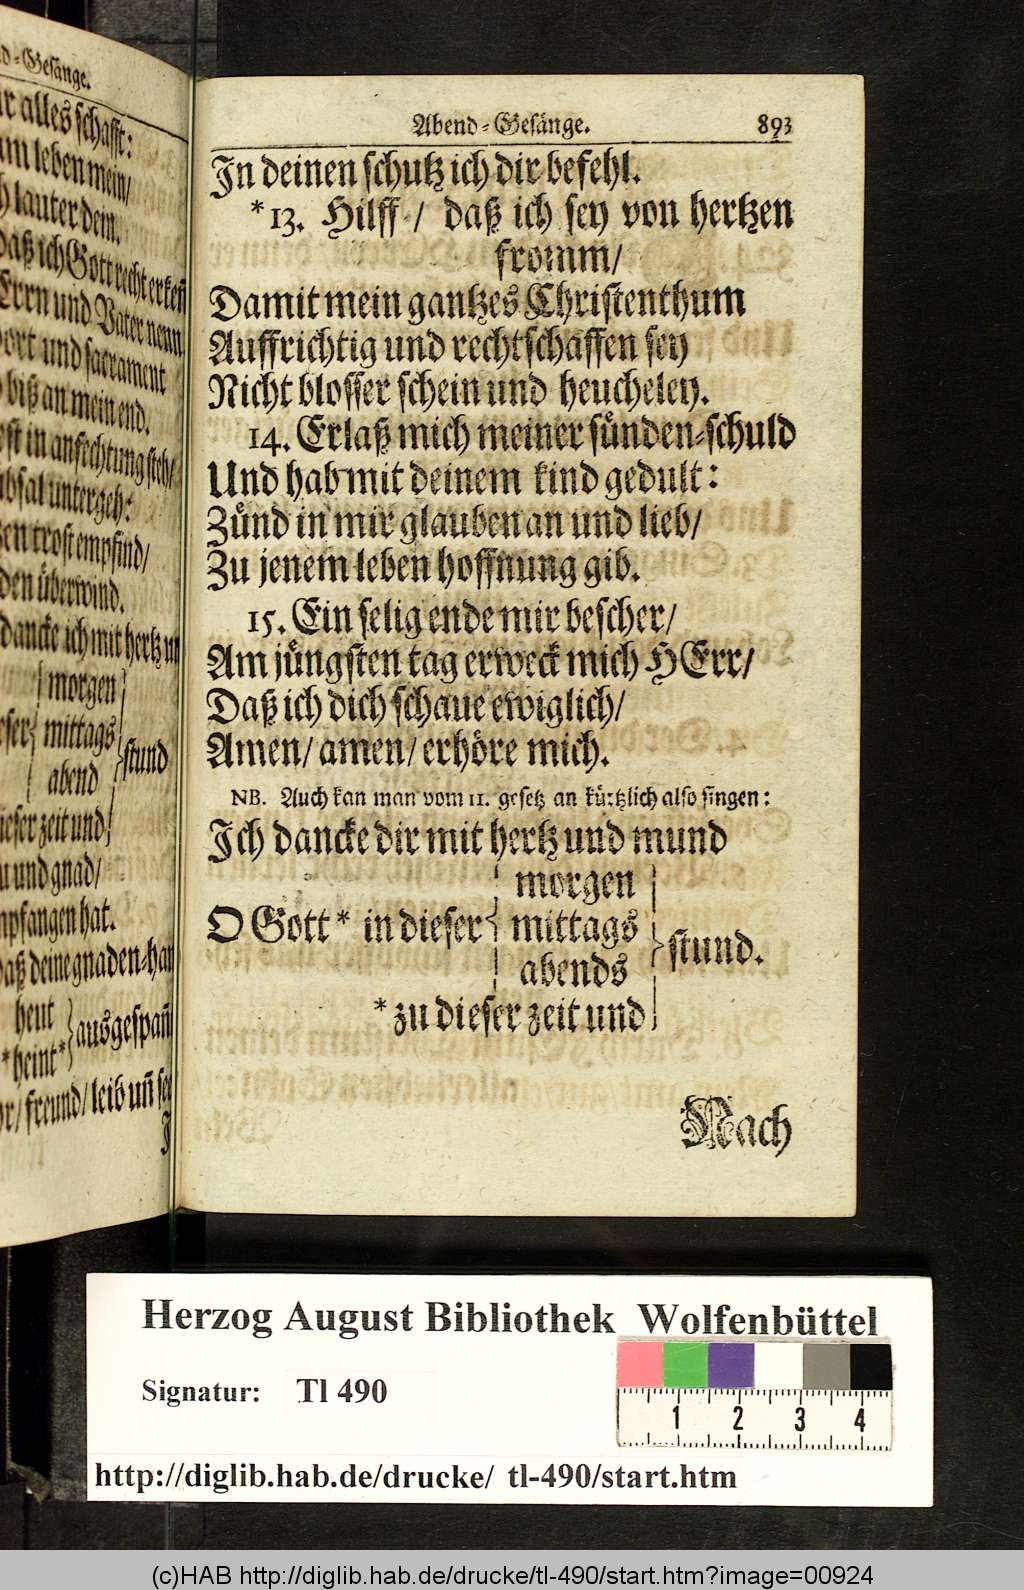 d-Gesänge.
r alles schafft:
um leben mein/
h lauter dein.
daß ich Gott recht erkeñ
Errn und Vater nenn
ort und sacrament
biß an mein end.
est in anfechtung steh/
bsal untergeh:
en trost empfind/
den überwind.
dancke ich mit hertz un
morgen
eser mittags stund
abend
ieser zeit und
u und gnad/
mpfangen hat.
daß deine gnaden-han
heut
*heint* ausgespañ
r/ freund/ leib uñ see
J
Abend-Gesänge. 893
In deinen schutz ich dir befehl.
*13. Hilff/ daß ich sey von hertzen
fromm/
Damit mein gantzes Christenthum
Auffrichtig und rechtschaffen sey
Nicht blosser schein und heucheley.
14. Erlaß mich meiner sünden-schuld
Und hab mit deinem kind gedult:
Zünd in mir glauben an und lieb/
Zu jenem leben hoffnung gib.
15. Ein selig ende mir bescher/
Am jüngsten tag erweck mich HErr/
Daß ich dich schaue ewiglich/
Amen/ amen/ erhöre mich.
NB. Auch kan man vom 11. gesetz an kürtzlich also singen:
Ich dancke dir mit hertz und mund
morgen
O Gott * in dieser mittags stund.
abends
*zu dieser zeit und
Nach
Herzog August Bibliothek Wolfenbüttel
Signatur: Tl 490
1 2 3 4
http://diglib.hab.de/drucke/ tl-490/start.htm
(c)HAB http://diglib.hab.de/drucke/tl-490/start.htm?image=00924